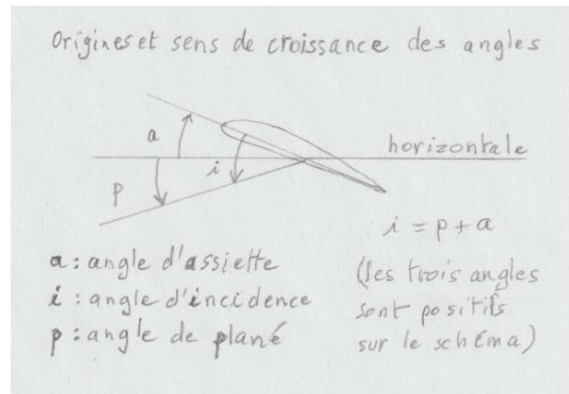 Origines et sens de croissance des angles
a
horizontale
i
p
i = p + a
a : angle d'assiette
i : angle d'incidence
p : angle de plané
(les trois angles
sont positifs
sur le schéma)